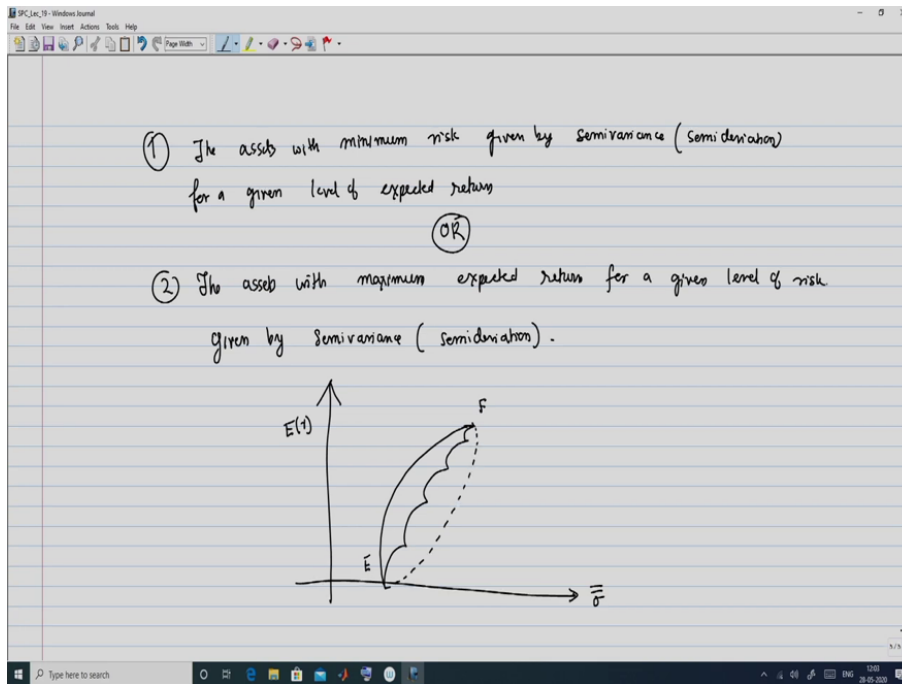 SPC_Lec_19 - Windows Journal
File Edit View Insert Actions Tools Help
Page Width
① The assets with minimum risk given by semivariance (semideviation)
for a given level of expected return
OR
② The assets with maximum expected return for a given level of risk
given by semivariance (semideviation).
E(r)
F
E
σ̿
5/5
Type here to search
ENG
12:03
28-05-2020